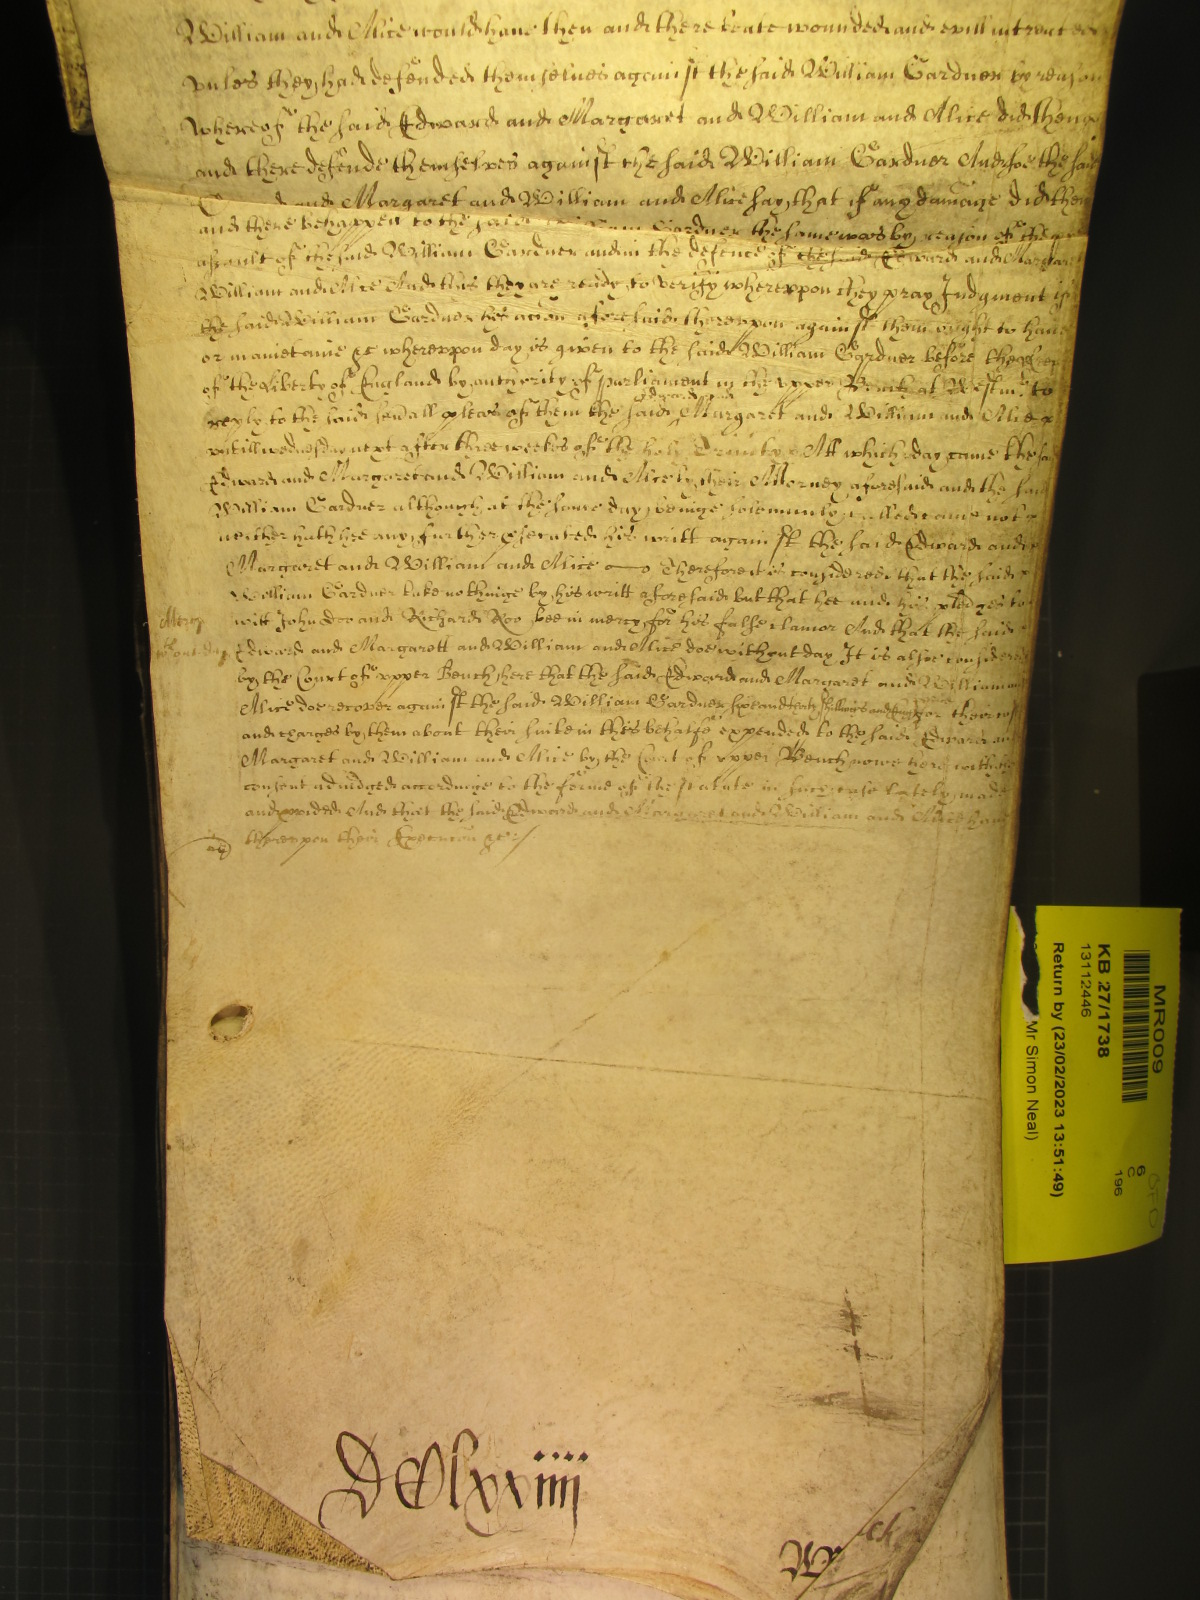 William and Alice would have then and there beate wounded and evill intreated
unles they had defended themselves against the said William Gardner by reason
whereof the said Edward and Margaret and William and Alice did then
and there defende themselves against the said William Gardner And soe the said
and Margaret and William and Alice say that if any damage did then
and there behappen to the said Gardner the same was by reason of the
assault of the said William Gardner and in the defence of the said Edward and Margaret
William and Alice And this they are ready to verify whereuppon they pray Judgment if
the said William Gardner his accion aforesaid thereuppon against them ought to have
or maintaine &c whereuppon day is given to the said William Gardner before the
of the Liberty of England by authority of parliament in the upper Bench at Westmr to
reply to the said severall pleas of them the said Edward and Margaret and William and Alice
untill wednesday next after three weekes of the holy Trinity Att which day came the said
Edward and Margaret and William and Alice by their Attorney aforesaid and the said
William Gardner although at the same day beinge solemnly called came not
neither hath hee any further prosecuted his writt against the said Edward and
Margaret and William and Alice Therefore it is considered that the said
William Gardner take nothinge by his writt aforesaid but that hee and his pledges to
Mercy
witt John Doo and Richard Roo bee in mercy for his false clamor And that the said
without day
Edward and Margarett and William and Alice doe without day It is alsoe considered
by the Court of upper Bench here that the said Edward and Margaret and William and
Alice doe recover against the said William Gardner shillings and for their costs
and charges by them about their suite in this behalfe expended to the said Edward and
Margaret and William and Alice by the Court of upper Bench nowe here with their
consent adiudged accordinge to the forme of the statute in such case lately made
and provided And that the said Edward and Margaret and William and Alice have
thereuppon their Execucon &c
DClxxiiij
MR009
KB 27/1738
13112446
Return by (23/02/2023 13:51:49)
Mr Simon Neal)
6
C
196